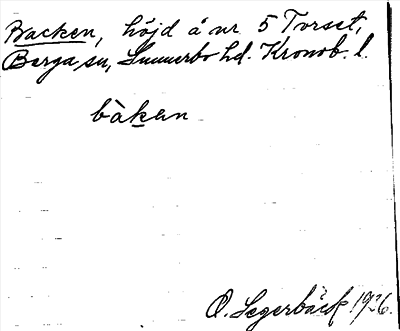 Backen, höjd å nr 5 Torset,
Berga sn, Sunnerbo hd. Kronob. l.
bàkan
O. Segerbäck 1926.